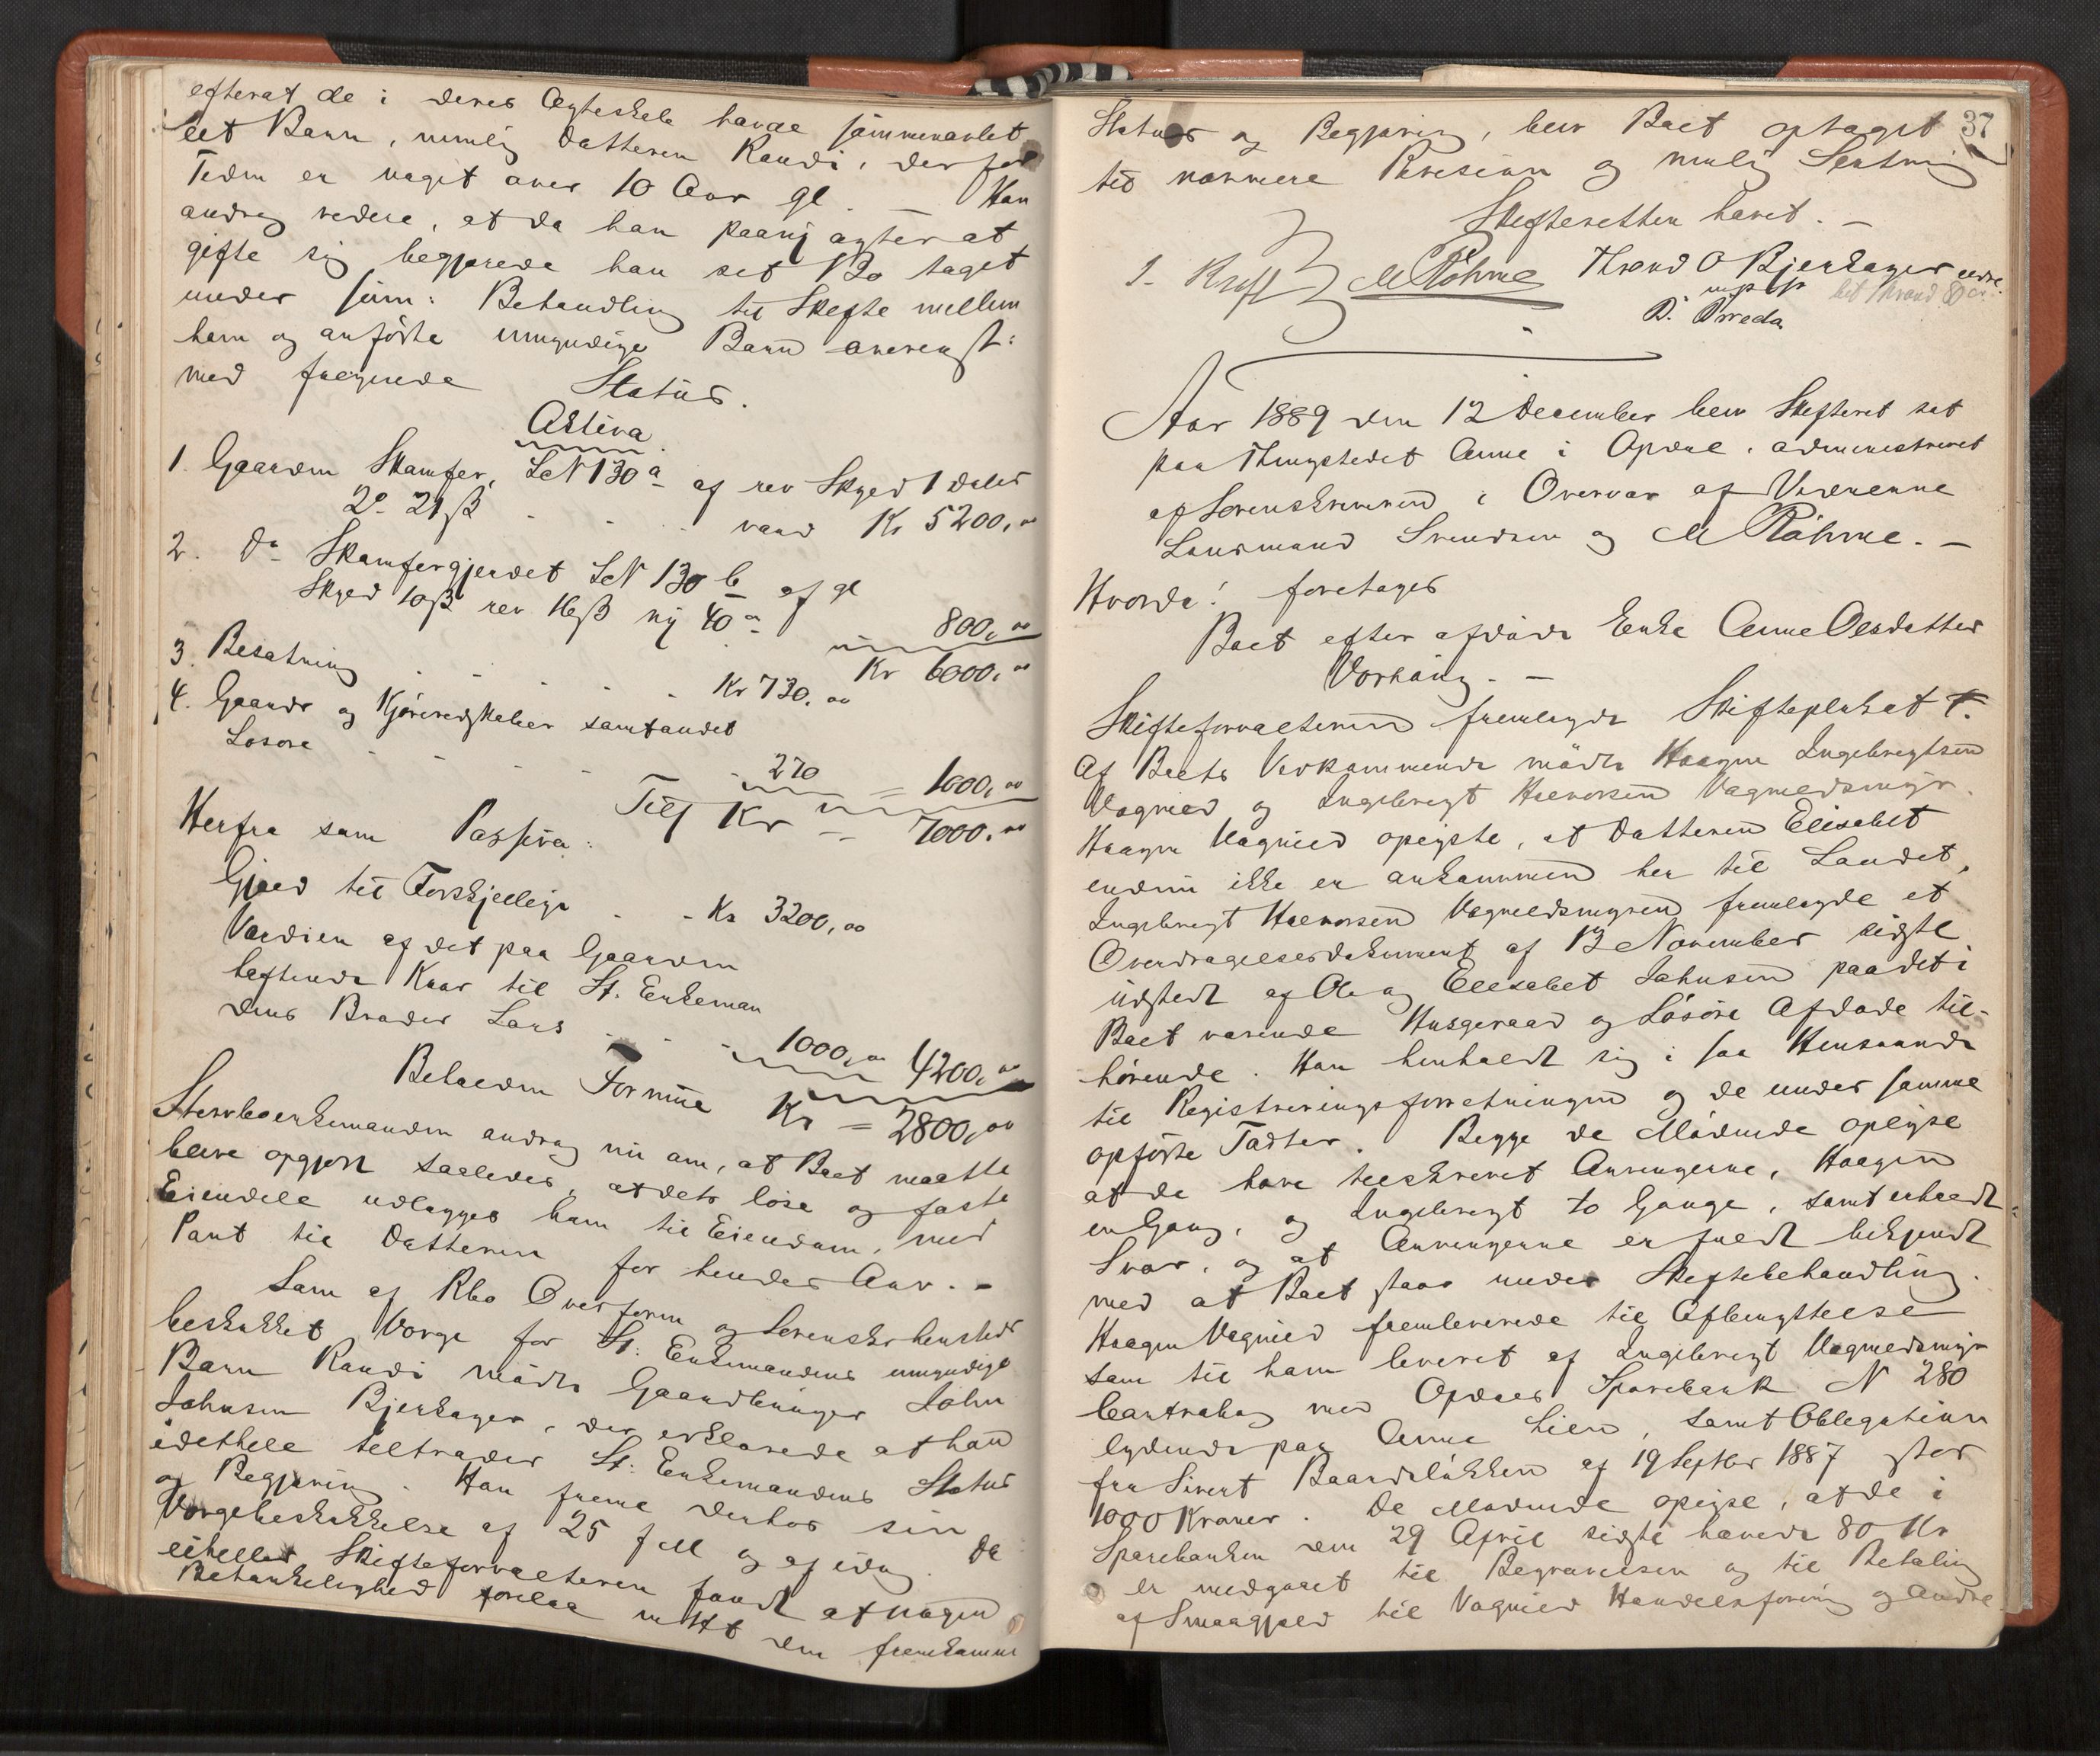 efterat de i deres Ægteskab havde sammenavlet
eet Barn, nemlig Datteren Randi, der for
Tiden er noget over 10 Aar gl. — Han
androg videre, at da han paany agter at
gifte sig begjærede han sit Bo taget
under Behandling til Skifte mellem
ham og anførte umyndige Barn overenst:
med følgende Status.
Aktiva
1. Gaarden Skamfer, LN 130 a af rev Skyld 1 daler
2 21 ß - - - værd Kr 5200,00
2. Do Skamfergjerdet LN 130 b af gl
Skyld 10 ß rev 16 ß ny 40 - 800,00
Kr 6000,00
3. Besætning - - - - Kr 730,00
4. Gaards og Kjøreredskaber samt andet
Løsøre - - - 270 = 1000,00
Tils Kr = 7000,00
Herfra som Passiva:
Gjæld til Forskjellige - - Kr 3200,00
Værdien af det paa Gaarden
heftende Kaar til St. Enkeman
dens Broder Lars - - 1000,00 4200,00
Beholden Formue Kr = 2800,00
Stervboenkemanden androg nu om, at Boet maatte
blive opgjort saaledes, at dets løse og faste
Eiendele udlægges ham til Eiendom, med
Pant til Datteren for hendes Arv. -
Som af Rbo Overform og Sorenskr. hersteds
beskikket Værge for St. Enkemandens umyndige
Barn Randi mødte Gaardbruger John
Johnsen Bjerkager, der erklærede at han
idethele tiltræder St. Enkemandens Status
og Begjæring. Han frem derhos sin
Værgebeskikkelse af 25 f M og af idag. Da
eiheller Skifteforvalteren fandt at nogen
Betænkelighed forelaa mod den fremkomne
37
Status og Begjæring, blev Boet optaget
til nærmere Revision og mulig Slutning
Skifteretten hævet. —
J. Kraft M Røhme Thrond O Bjerkager
m p P
D. Vreda
Aar 1889 den 12 December blev Skifteret sat
paa Thingstedet Aune i Opdal, administreret
af Sorenskriveren i Overvær af Vidnerne
Lensmand Svendsen og M Røhme. —
Hvorda! foretages
Boet efter afdøde Enke Anne Olsdatter
Vorhaug. —
Skifteforvalteren fremlagde Skifteplakat
Af Boets Vedkommende mødte Haagen Ingebregtsen
Vognild og Ingebregt Halvorsen Vognildsmyr.
Haagen Vognild oplyste, at Datteren Elisabet
endnu ikke er ankommen her til Landet,
Ingebregt Halvorsen Vognildsmyren fremlagde et
Overdragelsesdokument af 13 November sidstl
udstedt af Ole og Elisabet Johnsen paa det i
Boet værende Husgeraad og Løsøre Afdøde til-
hørende. Han henholdt sig i saa Henseende
til Registreringsforretningen og de under samme
opførte Taxter. Begge de Mødende oplyse
at de have tilskrevet Arvingerne, Haagen
en Gang, og Ingebregt to Gange, samt erholdt
Svar, og at Arvingerne er fuldt bekjendt
med at Boet staar under Skiftebehandling.
Haagen Vognild fremleverede til Afbenyttelse
som til ham leveret af Ingebregt Vognildsmyr
Contrabog med Opdals Sparebank N 280
lydende paa Anne Lien, samt Obligation
fra Sivert Baardsløkken af 19 Septbr 1887 stor
1000 Kroner. De Mødende oplyse, at de i
Sparebanken den 29 April sidstl hævede 80 Kr
er medgaaet til Begravelsen og til Betaling
af Smaagjæld til Vognild Handelsforening og Andre